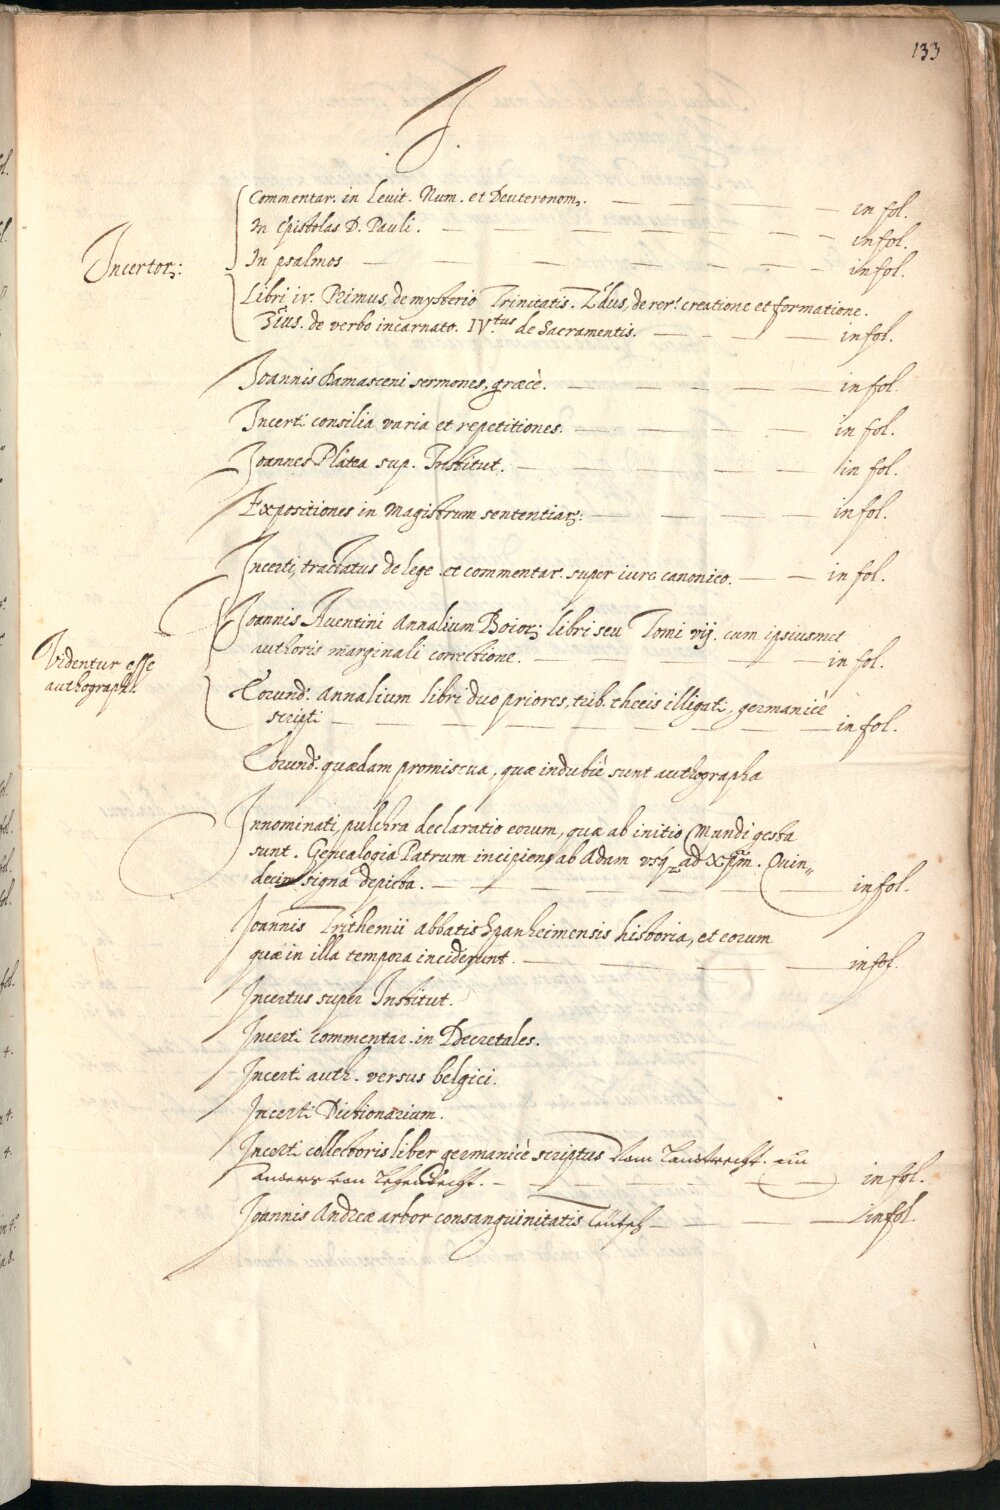 133
J.
Commentar. in Leuit. Num. et Deuteronom. in fol.
In Epistolas D. Pauli. in fol.
Incertor: In psalmos in fol.
Libri iv. Primus, de mysterio Trinitatis. 2dus, de rer. creatione et formatione.
3tius. de verbo incarnato. IV.tus de Sacramentis. in fol.
Joannis Damasceni sermones, græcè. in fol.
Incerti consilia varia et repetitiones. in fol.
Joannes Platea sup. Institut. in fol.
Expositiones in Magistrum sententiar: in fol.
Incerti, tractatus de lege et commentar. super iure canonico. in fol.
Joannis Auentini Annalium Boior; libri seu Tomi vij. cum ipsiusmet
authoris marginali correctione. in fol.
Videntur esse
authographi.
Eorund. Annalium libri duo priores, trib. thecis illigati, germanicè
scripti in fol.
Eorund. quædam promiscua, quæ indubiè sunt authographa
Innominati, pulchra declaratio eorum, quæ ab initio Mundi gesta
sunt. Genealogia Patrum incipiens ab Adam vsq; ad Xp̄m. Quin„
decim signa depicta. in fol.
Joannis Trithemii Abbatis Spanheimensis historia, et eorum
quæ in illa tempora inciderunt. in fol.
Incertus super Institut.
Incerti commentar. in Decretales.
Incerti auth. versus belgici.
Incerti Dictionarium.
Incerti collectoris liber germanicè scriptus Vom Landtrecht. ein
anders von Lehendrecht. in fol.
Joannis Andreæ arbor consanguinitatis Teütsch in fol.